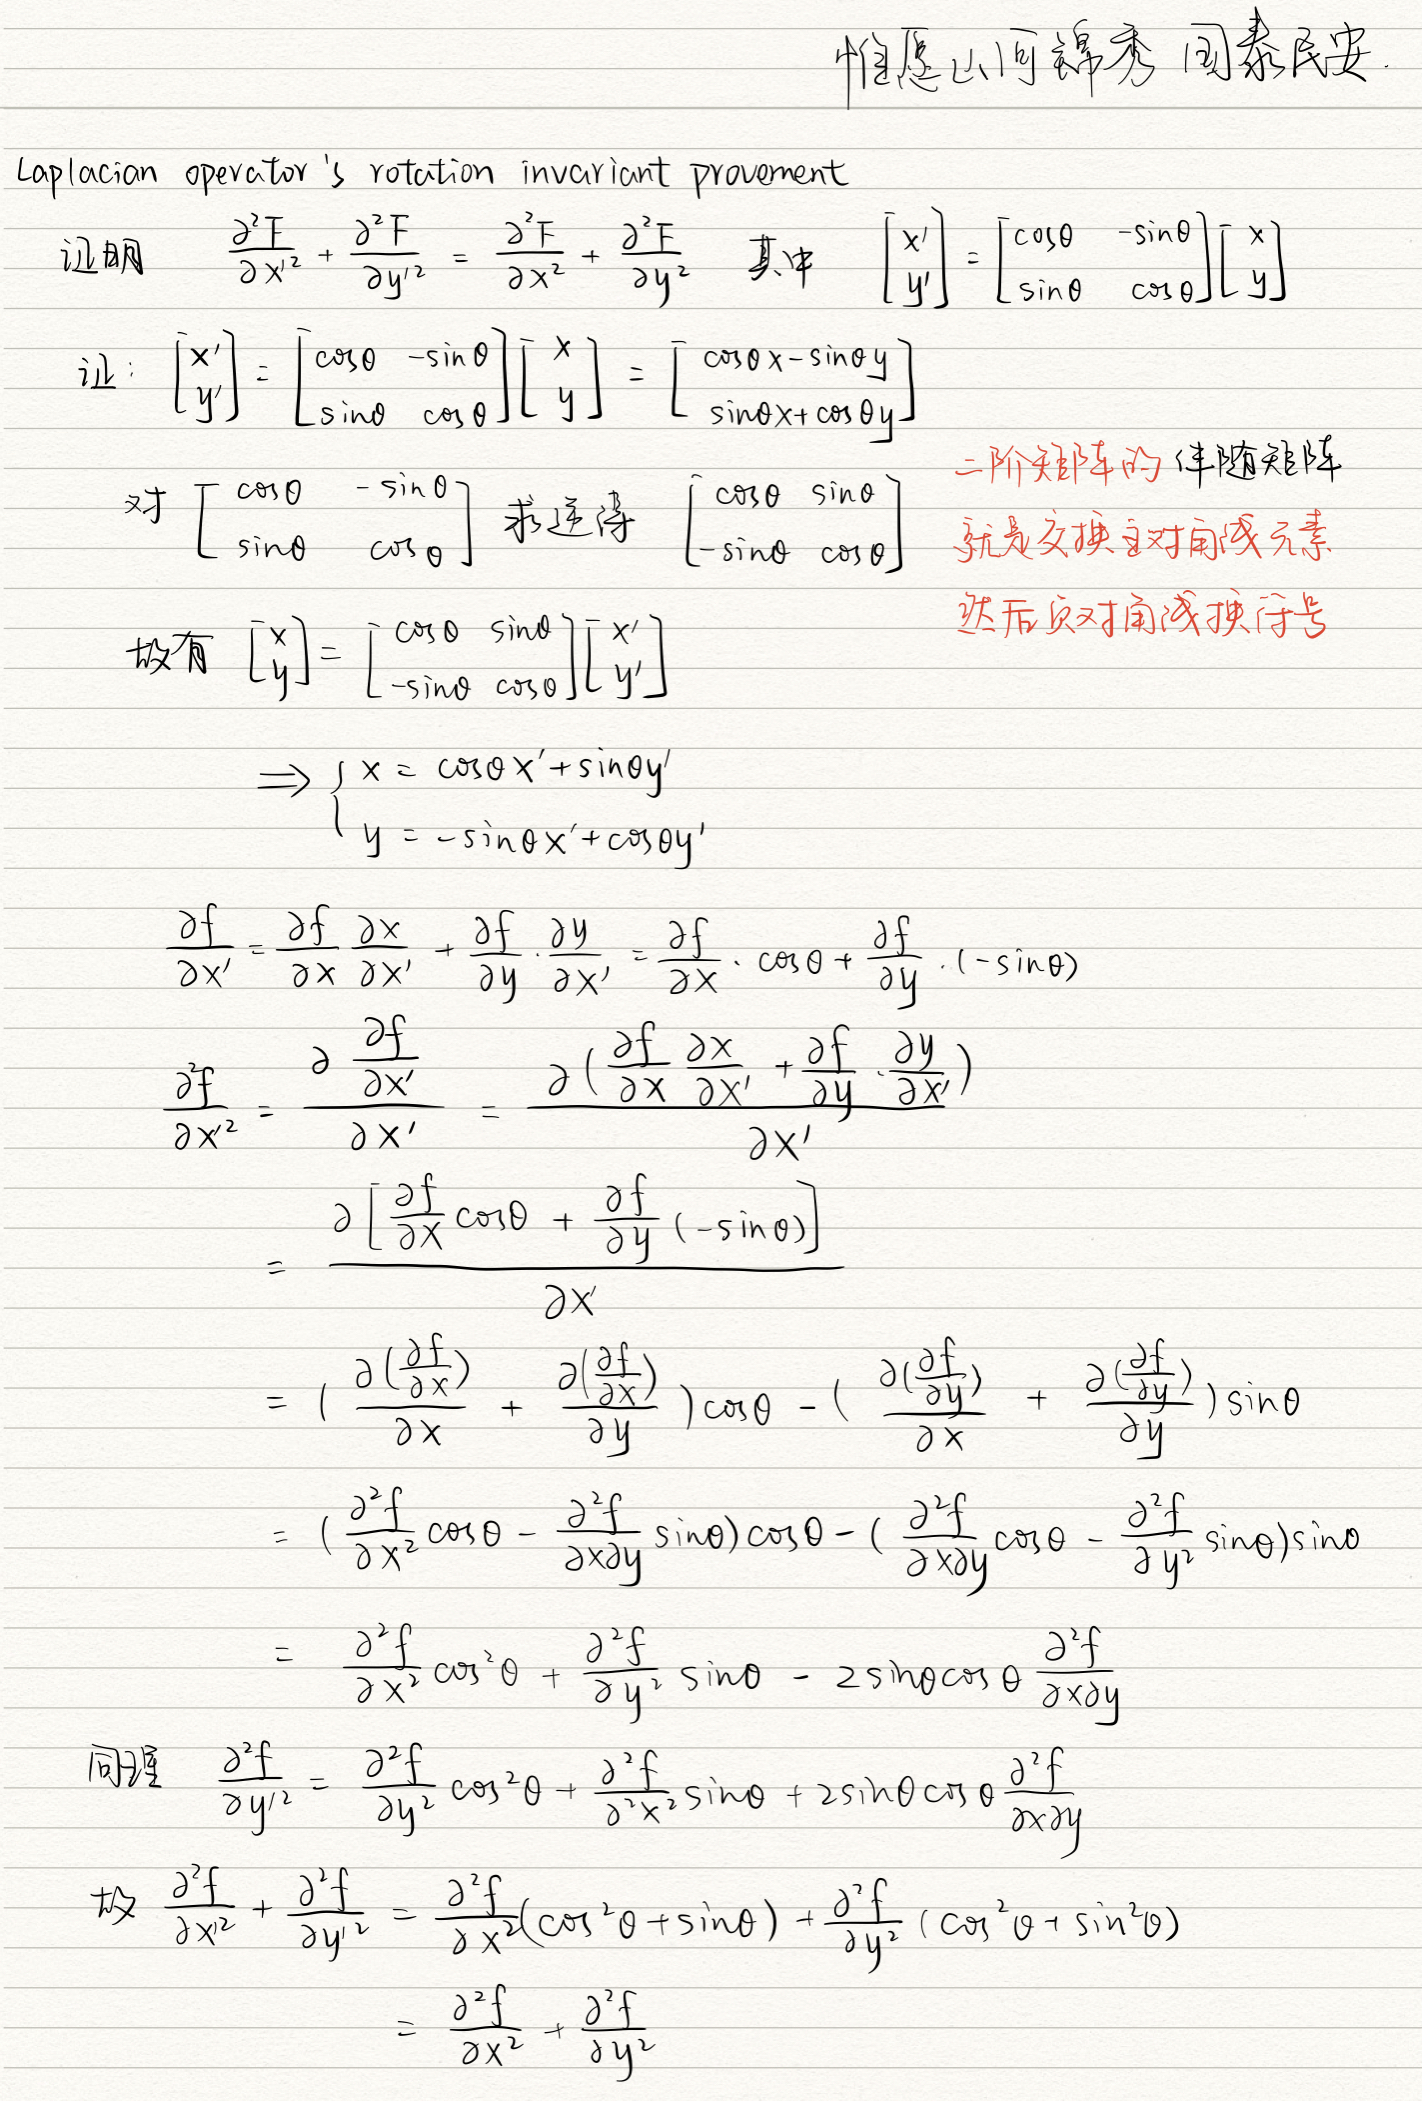 惟愿山河锦秀 国泰民安.
Laplacian operator's rotation invariant provement
证明 ∂²F/∂x'² + ∂²F/∂y'² = ∂²F/∂x² + ∂²F/∂y² 其中 [x' ; y'] = [cosθ -sinθ ; sinθ cosθ][x ; y]
证: [x' ; y'] = [cosθ -sinθ ; sinθ cosθ][x ; y] = [cosθx-sinθy ; sinθx+cosθy]
二阶矩阵的伴随矩阵
对 [cosθ -sinθ ; sinθ cosθ] 求逆得 [cosθ sinθ ; -sinθ cosθ]
就是交换主对角线元素
然后负对角线换符号
故有 [x ; y] = [cosθ sinθ ; -sinθ cosθ][x' ; y']
⇒ { x = cosθx'+sinθy'
y = -sinθx'+cosθy'
∂f/∂x' = ∂f/∂x ∂x/∂x' + ∂f/∂y · ∂y/∂x' = ∂f/∂x · cosθ + ∂f/∂y · (-sinθ)
∂²f/∂x'² = ∂ ∂f/∂x' / ∂x' = ∂(∂f/∂x ∂x/∂x' + ∂f/∂y · ∂y/∂x') / ∂x'
= ∂[∂f/∂x cosθ + ∂f/∂y (-sinθ)] / ∂x'
= ( ∂(∂f/∂x)/∂x + ∂(∂f/∂x)/∂y ) cosθ - ( ∂(∂f/∂y)/∂x + ∂(∂f/∂y)/∂y ) sinθ
= ( ∂²f/∂x² cosθ - ∂²f/∂x∂y sinθ) cosθ - ( ∂²f/∂x∂y cosθ - ∂²f/∂y² sinθ) sinθ
= ∂²f/∂x² cos²θ + ∂²f/∂y² sinθ - 2sinθcosθ ∂²f/∂x∂y
同理 ∂²f/∂y'² = ∂²f/∂y² cos²θ + ∂²f/∂²x² sinθ + 2sinθcosθ ∂²f/∂x∂y
故 ∂²f/∂x'² + ∂²f/∂y'² = ∂²f/∂x² (cos²θ+sinθ) + ∂²f/∂y² (cos²θ+sin²θ)
= ∂²f/∂x² + ∂²f/∂y²